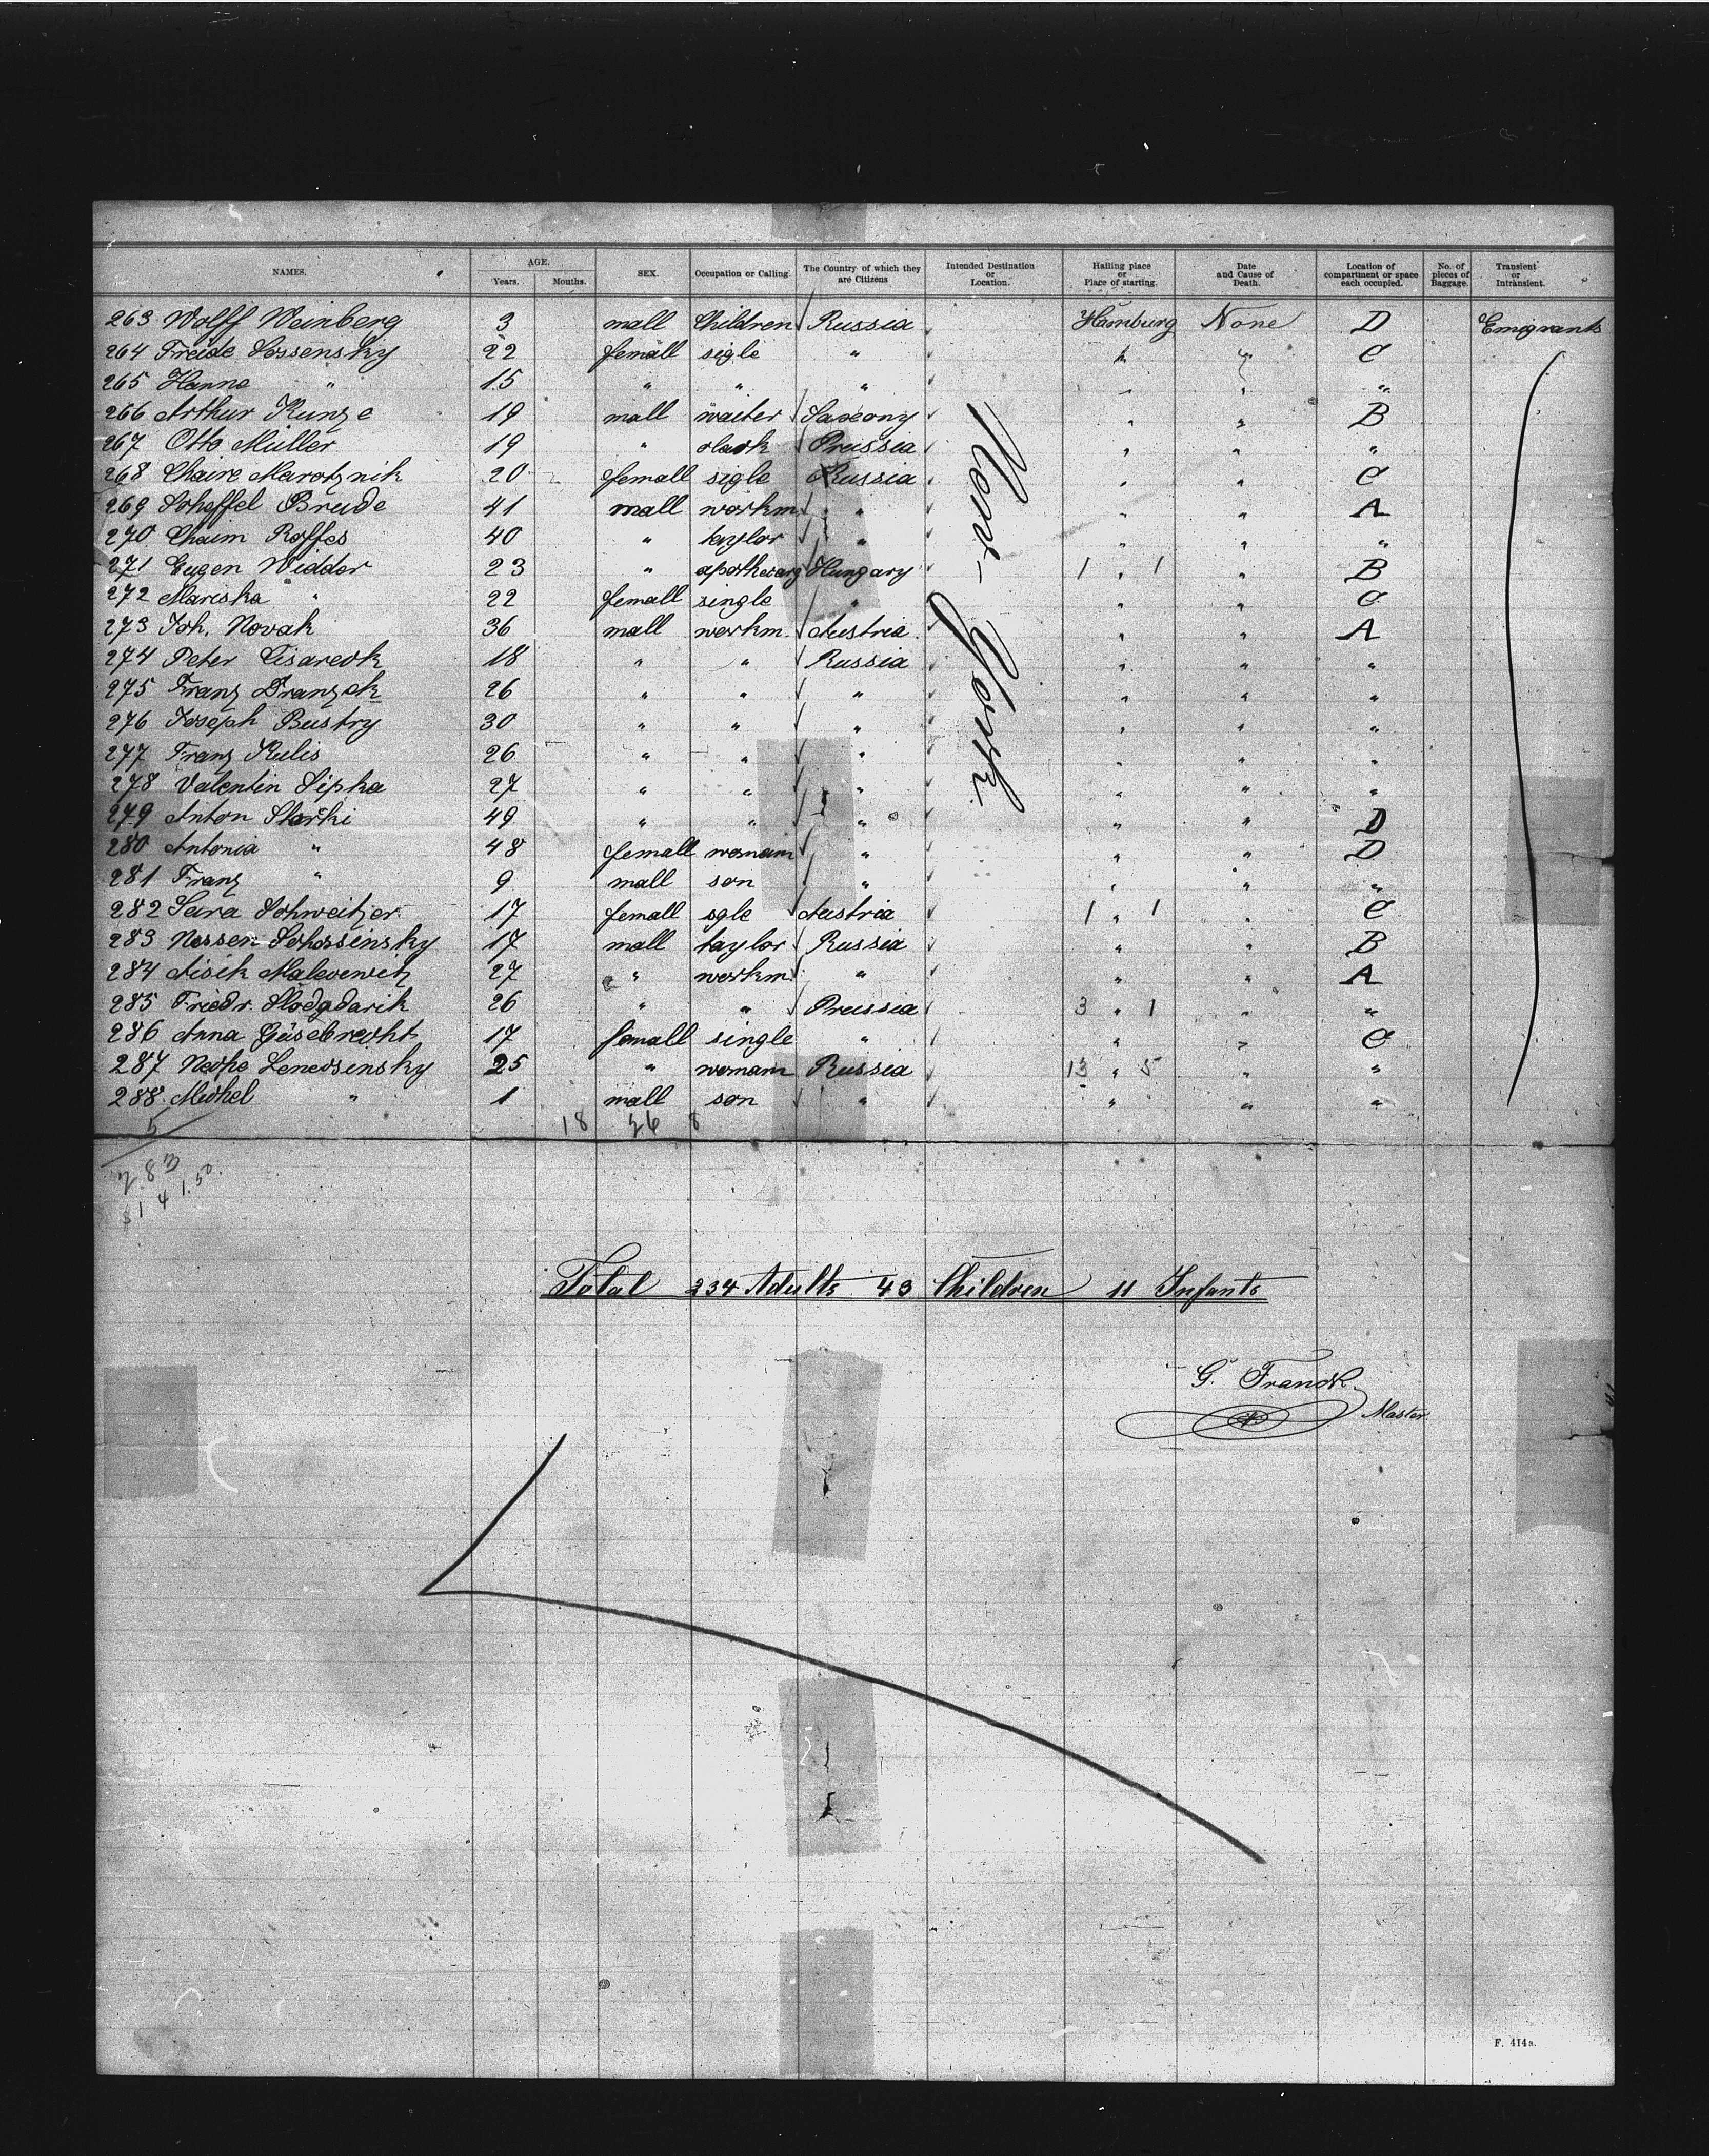 NAMES. AGE. SEX. Occupation or Calling. The Country of which they are Citizens Intended Destination or Location. Hailing place or Place of starting. Date and Cause of Death. Location of compartment or space each occupied. No. of pieces of Baggage. Transient or Intransient.
Years. Months.
263 Wolff Weinberg 3 mall Children Russia Hamburg None D Emigrants
264 Freide Sossensky 22 femall sigle " " " C
265 Hanna " 15 " " " " " "
266 Arthur Kunze 19 mall waiter Saxony " " B
267 Otto Müller 19 " clark Prussia " " "
268 Chaire Marotznik 20 femall sigle Russia " " C
269 Scheffel Brude 41 mall workm. " " " A
270 Chaim Roffes 40 " taylor " " " "
271 Eugen Widder 23 " Hungary 1 " 1 " B
272 Mariska " 22 femall single " " " C
273 Joh. Novak 36 mall workm. Austria " " A
274 Peter Cisareck 18 " " Russia " " "
275 Franz Franzek 26 " " " " " "
276 Joseph Bustry 30 " " " " " "
277 Franz Kulis 26 " " " " " "
278 Valentin Sipka 27 " " " " " "
279 Anton Starki 49 " " " " " D
280 Antonia " 48 femall womam " " " D
281 Franz " 9 mall son " " " "
282 Sara Schweitzer 17 femall sgle Austria 1 " 1 " C
283 Nossen Schossinsky 17 mall taylor Russia " " B
284 Aisik Malevewitz 27 " workm. " " " A
285 Friedr. 26 " " Prussia 3 " 1 " "
286 Anna Giesebrecht 17 femall single " " " C
287 Neche Lenecsinsky 25 " womam Russia 13 " 5 " "
288 Michel " 1 mall son " " " "
New-York
5 18 26 8
283
$141.50
Total 234 Adults 43 Children 11 Infants
G. Franck
Master
F. 414a.